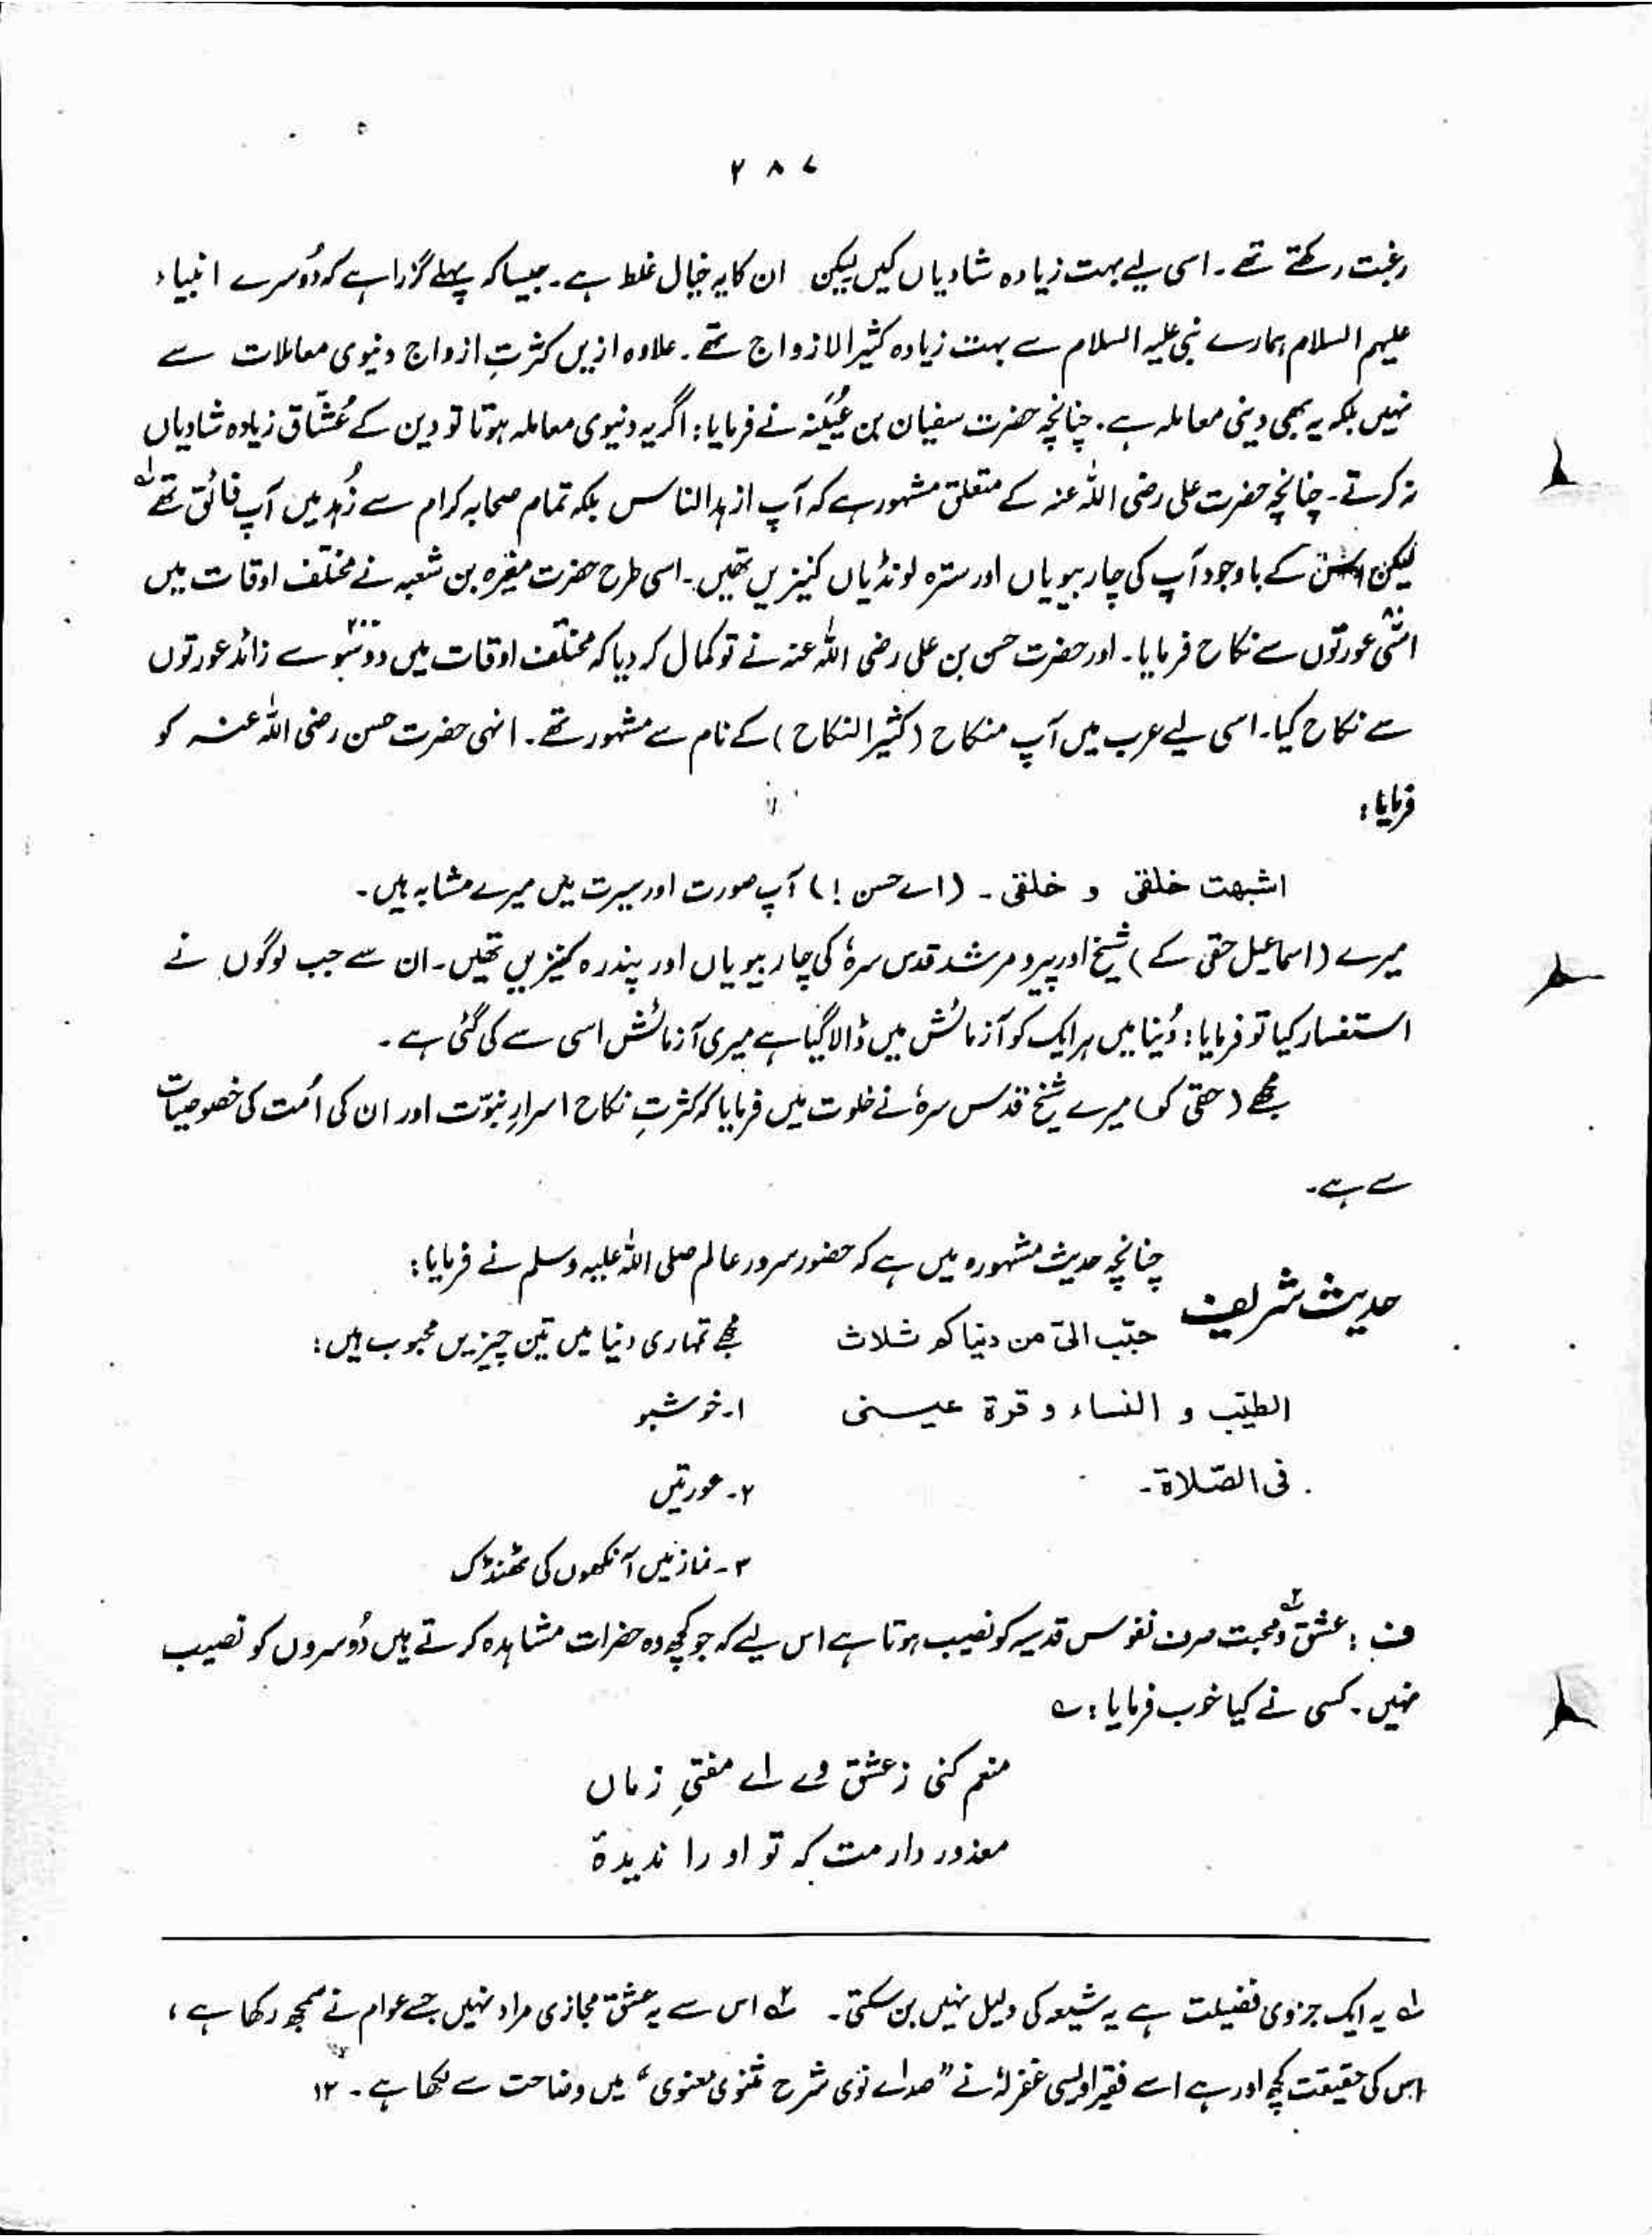 ۲۸۷
رغبت رکھتے تھے۔ اسی لیے بہت زیادہ شادیاں کیں لیکن ان کا یہ خیال غلط ہے۔ جیسا کہ پہلے گزرا ہے کہ دُوسرے انبیاء
علیہم السلام ہمارے نبی علیہ السلام سے بہت زیادہ کثیر الازواج تھے۔ علاوہ ازیں کثرتِ ازواج دنیوی معاملات سے
نہیں بلکہ یہ بھی دینی معاملہ ہے۔ چنانچہ حضرت سفیان بن عُیَینہ نے فرمایا: اگر یہ دنیوی معاملہ ہوتا تو دین کے عُشّاق زیادہ شادیاں
نہ کرتے۔ چنانچہ حضرت علی رضی اللہ عنہ کے متعلق مشہور ہے کہ آپ ازہد الناس بلکہ تمام صحابہ کرام سے زُہد میں آپ فائق تھے لہ
لیکن اس کے باوجود آپ کی چار بیویاں اور سترہ لونڈیاں کنیزیں تھیں۔ اسی طرح حضرت مغیرہ بن شعبہ نے مختلف اوقات میں
اسّی ۸۰ عورتوں سے نکاح فرمایا۔ اور حضرت حسن بن علی رضی اللہ عنہ نے تو کمال کر دیا کہ مختلف اوقات میں دو سَو ۲۰۰ سے زائد عورتوں
سے نکاح کیا۔ اسی لیے عرب میں آپ منکاح (کثیر النکاح) کے نام سے مشہور تھے۔ انہی حضرت حسن رضی اللہ عنہ کو
فرمایا:
اشبھت خلقی و خلقی۔ (اے حسن!) آپ صورت اور سیرت میں میرے مشابہ ہیں۔
میرے (اسماعیل حقی کے) شیخ اور پیر و مرشد قدس سرہٗ کی چار بیویاں اور پندرہ کنیزیں تھیں۔ ان سے جب لوگوں نے
استفسار کیا تو فرمایا: دُنیا میں ہر ایک کو آزمائش میں ڈالا گیا ہے میری آزمائش اسی سے کی گئی ہے۔
مجھے (حقی کو) میرے شیخ قدس سرہٗ نے خلوت میں فرمایا کہ کثرتِ نکاح اسرارِ نبوّت اور ان کی اُمت کی خصوصیات
سے ہے۔
حدیث شریف چنانچہ حدیث مشہورہ میں ہے کہ حضور سرور عالم صلی اللہ علیہ وسلم نے فرمایا:
حبّب الیّ من دنیاکو ثلاث مجھے تمہاری دنیا میں تین چیزیں محبوب ہیں:
الطیّب و النساء و قرۃ عینی ۱۔ خوشبو
فی الصّلاۃ۔ ۲۔ عورتیں
۳۔ نماز میں آنکھوں کی ٹھنڈک
ف: عشق ۲ہ و محبت صرف نفوس قدسیہ کو نصیب ہوتا ہے اس لیے کہ جو کچھ وہ حضرات مشاہدہ کرتے ہیں دُوسروں کو نصیب
نہیں۔ کسی نے کیا خوب فرمایا: ؎
منعم کنی ز عشق وے اے مفتیِ زماں
معذور دارمت کہ تو او را ندیدۂ
لہ یہ ایک جزوی فضیلت ہے یہ شیعہ کی دلیل نہیں بن سکتی۔ ۲ہ اس سے یہ عشق مجازی مراد نہیں جسے عوام نے سمجھ رکھا ہے،
اس کی حقیقت کچھ اور ہے اسے فقیر اویسی غفرلہٗ نے "صدائے نوی شرح مثنوی معنوی" میں وضاحت سے لکھا ہے۔ ۱۲